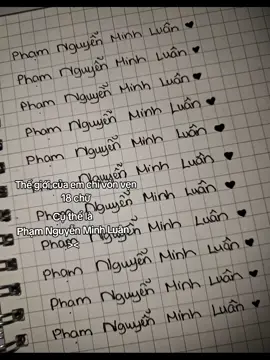 Phạm Nguyễn Minh Luân ♥
Phạm Nguyễn Minh Luân ♥
Phạm Nguyễn Minh Luân ♥
Phạm Nguyễn Minh Luân ♥
Phạm Nguyễn Minh Luân ♥
Phạm Nguyễn Minh Luân ♥
Thế giới của em chỉ vỏn vẹn
18 chữ
Cứ thế là
Phạm Nguyễn Minh Luân
Phạm Nguyễn Minh Luân ♥
Phạm Nguyễn Minh Luân ♥
Phạm Nguyễn Minh Luân ♥
Phạm Nguyễn Minh Luân ♥
Phạm Nguyễn Minh Luân ♥